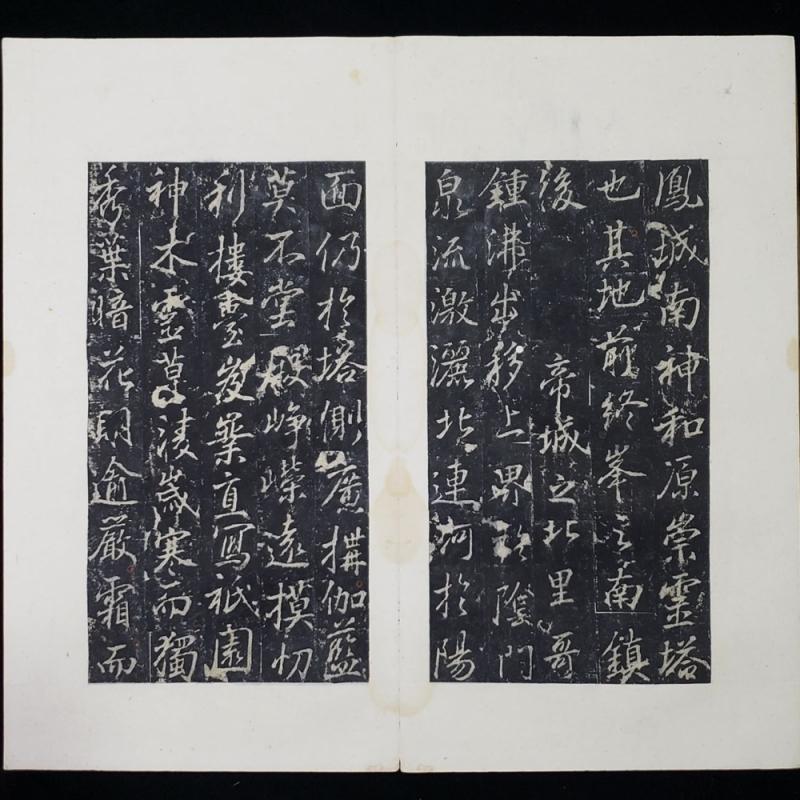 鳳城南神和原崇靈塔
也其地前終峯之南鎮
後 帝城之北里哥
鍾沸出移上界於陰門
泉流激灑北連河於陽
面仍於塔側廣構伽藍
莫不堂殿崢嶸遠摸忉
利樓臺岌嶪直寫祇園
神木靈草凌歲寒而獨
秀葉暗花明逾嚴霜而